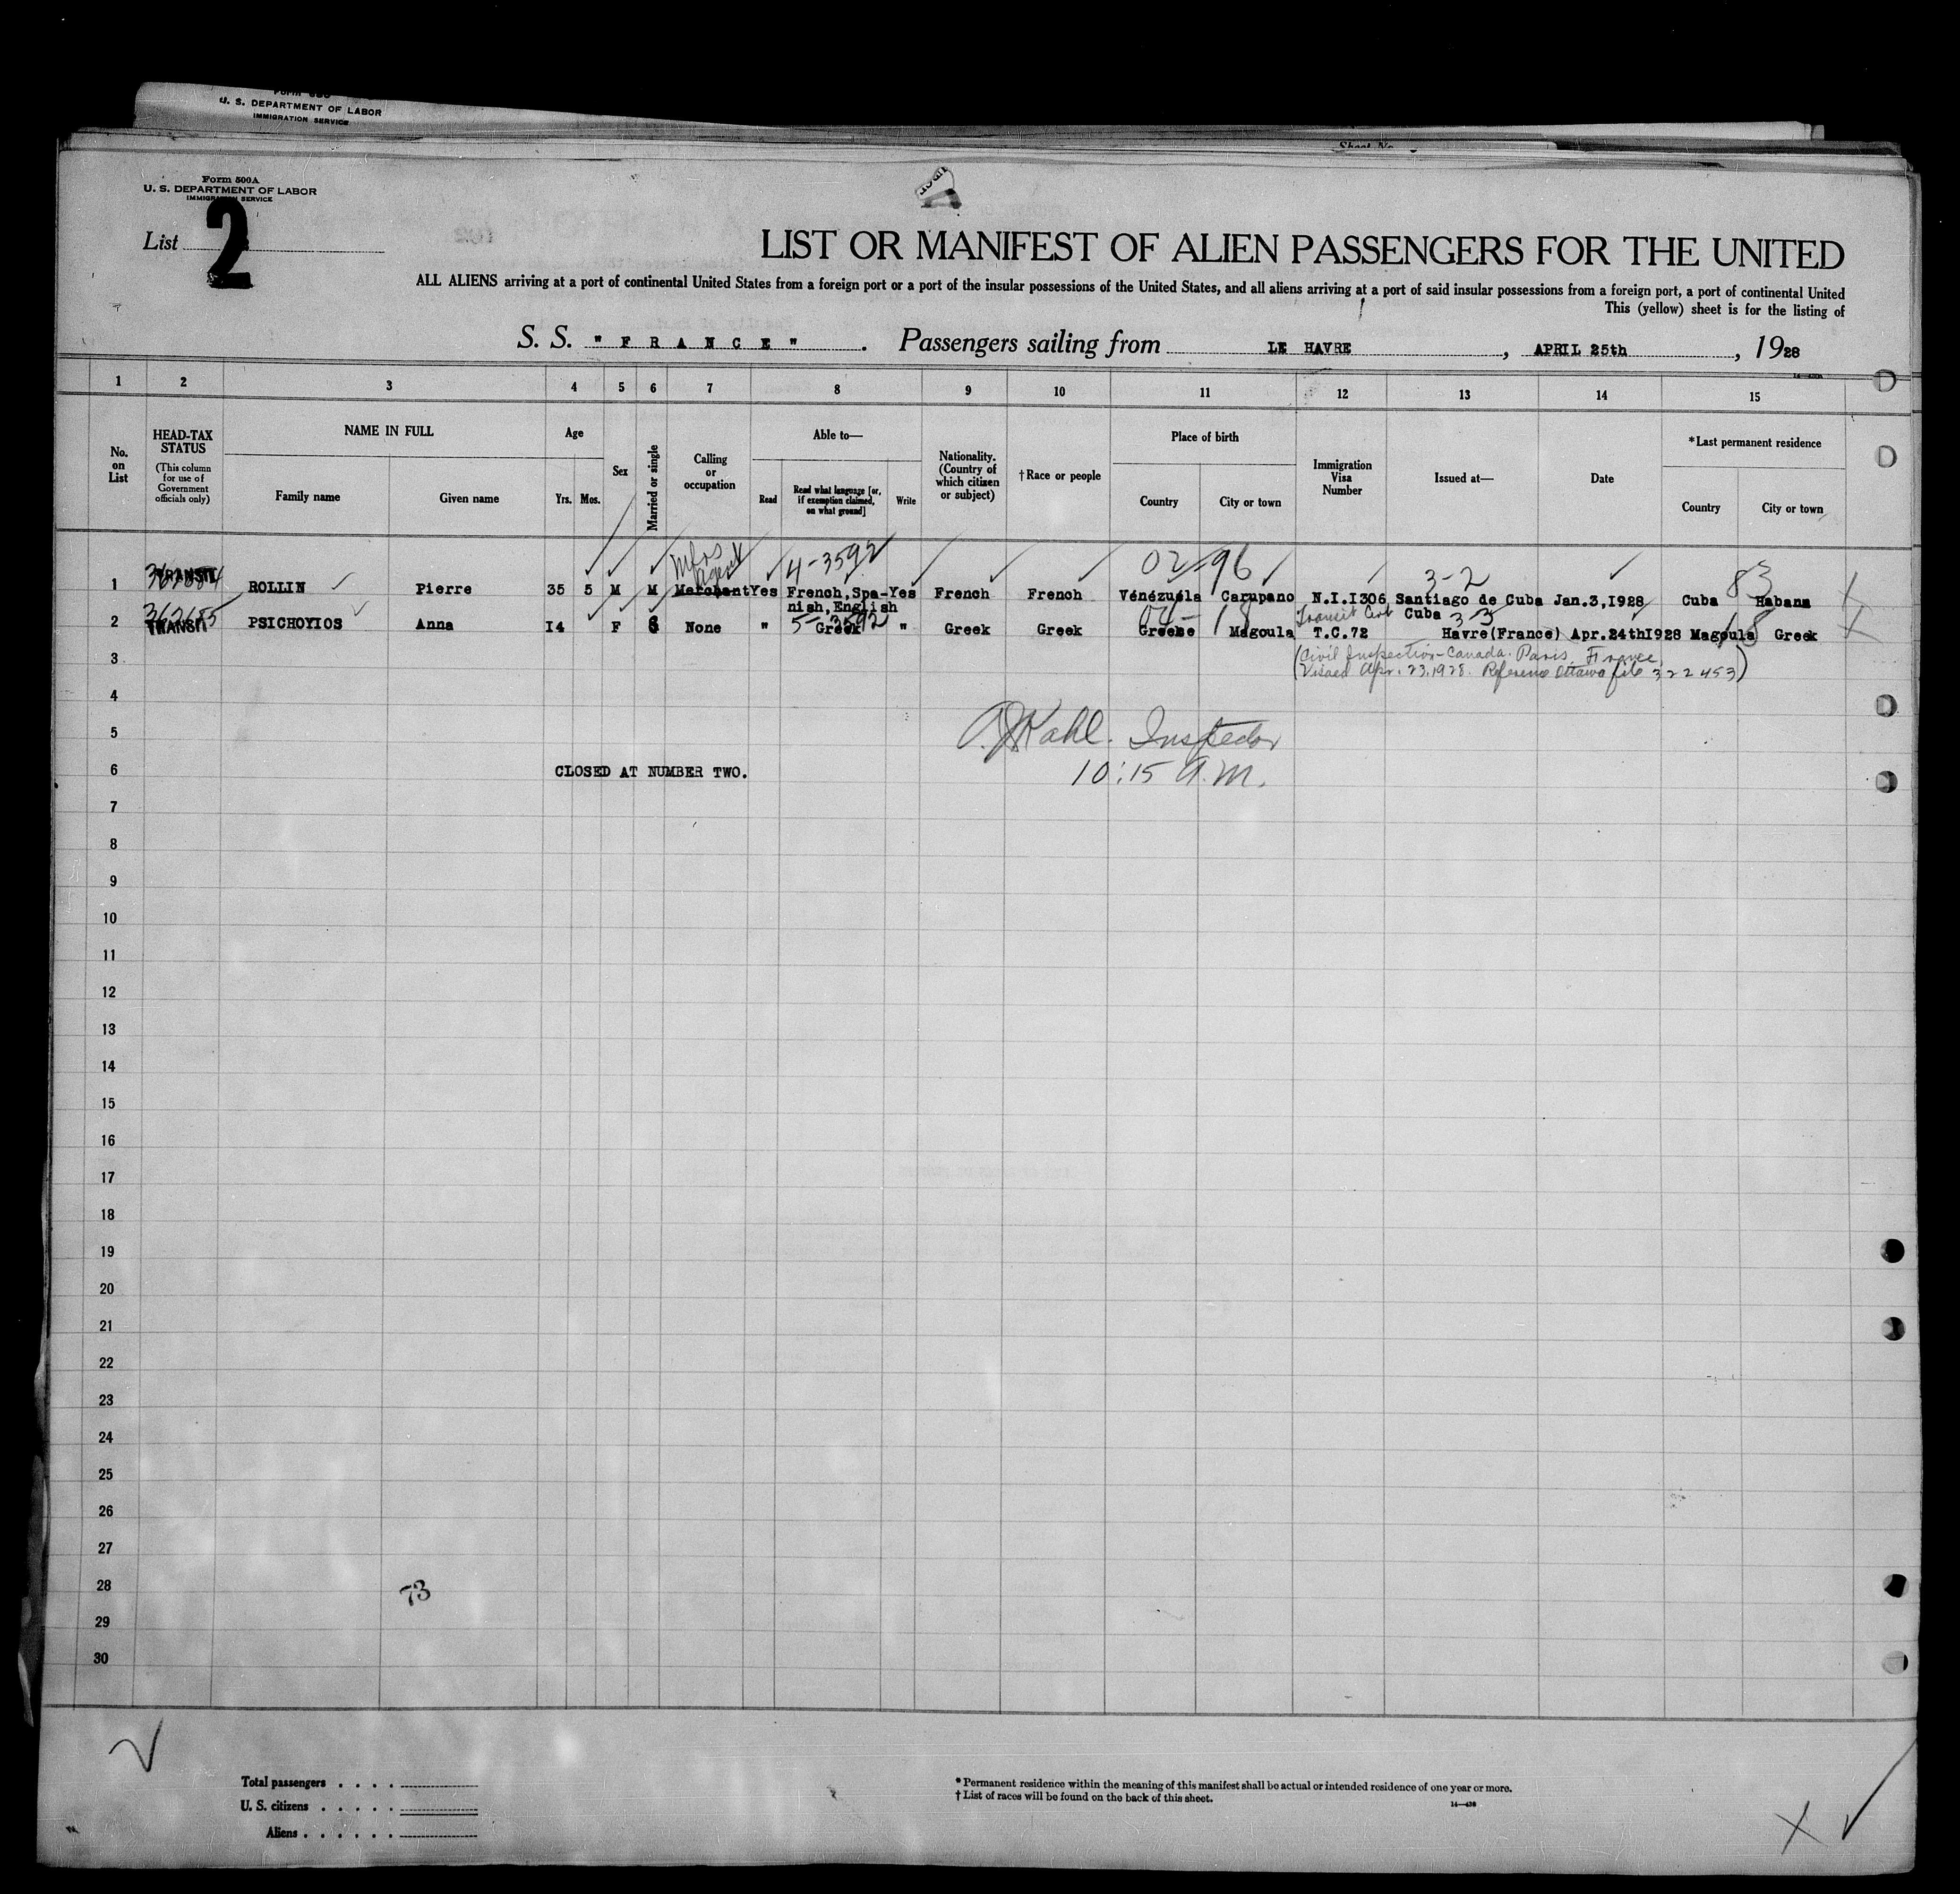 U. S. DEPARTMENT OF LABOR
IMMIGRATION SERVICE
Form 500A
U. S. DEPARTMENT OF LABOR
IMMIGRATION SERVICE
List 2
LIST OR MANIFEST OF ALIEN PASSENGERS FOR THE UNITED
ALL ALIENS arriving at a port of continental United States from a foreign port or a port of the insular possessions of the United States, and all aliens arriving at a port of said insular possessions from a foreign port, a port of continental United
This (yellow) sheet is for the listing of
S. S. " F R A N C E " . Passengers sailing from LE HAVRE , APRIL 25th , 1928
1 2 3 4 5 6 7 8 9 10 11 12 13 14 15
No. on List
HEAD-TAX STATUS (This column for use of Government officials only)
NAME IN FULL
Family name Given name
Age
Yrs. Mos.
Sex
Married or single
Calling or occupation
Able to—
Read Read what language [or, if exemption claimed, on what ground] Write
Nationality. (Country of which citizen or subject)
†Race or people
Place of birth
Country City or town
Immigration Visa Number
Issued at—
Date
*Last permanent residence
Country City or town
Mfrs Agent 4-3592 02-96 3-2 83
1 TRANSIT ROLLIN Pierre 35 5 M M Merchant Yes French,Spa- Yes French French Vénézuéla Carupano N.I.I306 Santiago de Cuba Jan.3,I928 Cuba Habana
nish,English Transit Cert Cuba 3-3
362655 5-3592 04-18 18
2 TRANSIT PSICHOYIOS Anna I4 F S None " Greek " Greek Greek Greece Magoula T.C.72 Havre(France) Apr.24thI928 Magoula Greek
3 (Civil Inspection-Canada. Paris, France,
Visaed Apr. 23, 1928. Reference Ottawa file 322453)
4
5 A.J.Kahl. Inspector
6 CLOSED AT NUMBER TWO. 10:15 A.M.
7
8
9
10
11
12
13
14
15
16
17
18
19
20
21
22
23
24
25
26
27
28 73
29
30
Total passengers . . . .
U. S. citizens . . . . .
Aliens . . . . . .
* Permanent residence within the meaning of this manifest shall be actual or intended residence of one year or more.
† List of races will be found on the back of this sheet.